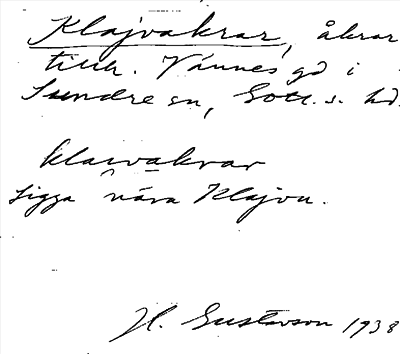 Klajvakrar, åkrar
tillh. Vännes gd i
Sundre sn, Gotl. s. hd.
klai̯vakrar
Ligga nära Klajvu.
H. Gustavson 1938